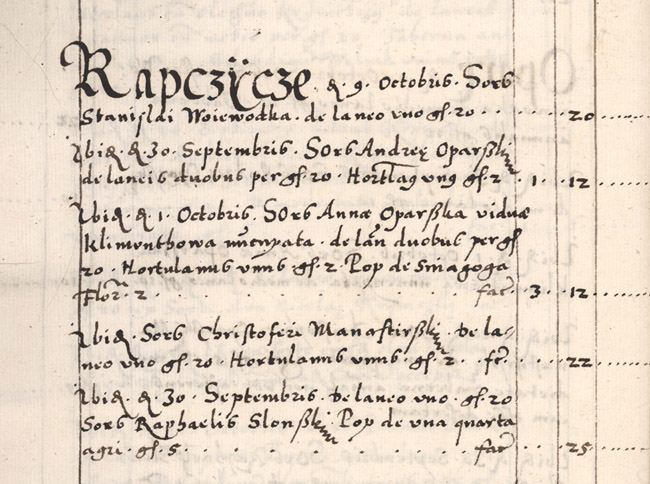 Rapczÿcze. d. 9. Octobris. Sors
Stanislai Woiewodka. de laneo vno gſ. 20 . . . . 20
Ibid. d. 30. Septembris. Sors Andreę Oparßki
de laneis duobus per gſ. 20. Hortlag vng gſ. 2 . 1 . 12
Ibid. d. 1. Octobris. Sors Annæ Oparßka viduæ
Klimunthowa nūcupata. de lan duobus per gſ
20. Hortulanus vnus gſ. 2. Pop de Sinagoga
Flor. 2 . . . . . . . . fac. 3 . 12
Ibid. Sors Christoferi Manastirßki. de la-
neo vno gſ. 20. Hortulanus vnus. gſ. 2. fc. . . 22
Ibid. d. 30. Septembris. de laneo vno. gſ. 20
Sors Raphaelis Slonßki. Pop de vna quarta
agri. gſ. 5. . . . . . . . fac. . . 25